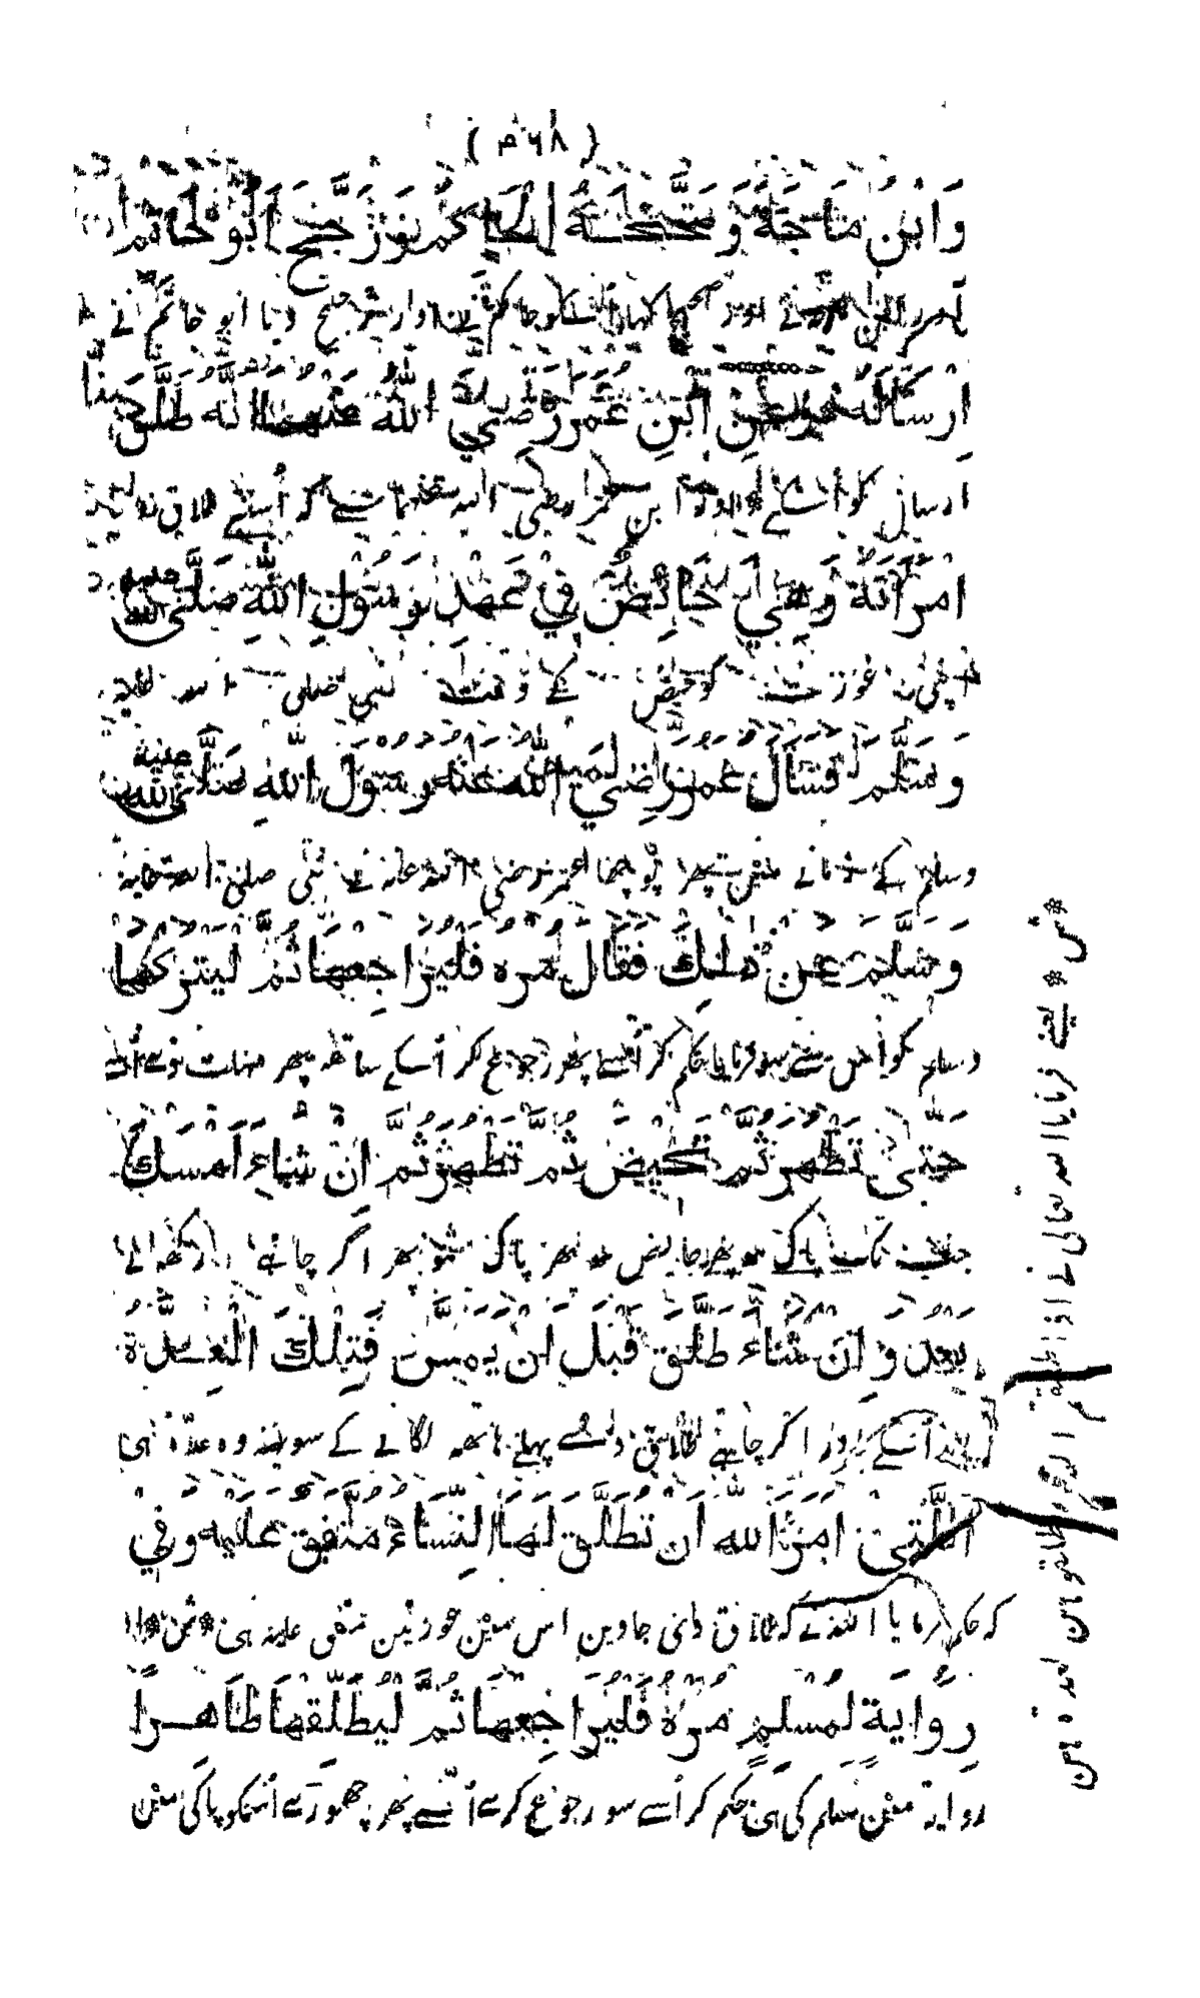 (۴۶۸)
وَابْنُ مَاجَهْ وَصَحَّحَهُ الْحَاكِمُ وَرَجَّحَ أَبُو حَاتِمٍ
اور صحیح کہا اسکو حاکم نے اور ترجیح دیا ابو حاتم نے
اِرْسَالَهُ وَعَنِ ابْنِ عُمَرَ رَضِيَ اللهُ عَنْهُمَا اَنَّهُ طَلَّقَ
ارسال کو اسکے اور ابن عمر رضی الله عنهما سے کہ اُسنے طلاق
امْرَأَتَهُ وَهِيَ حَائِضٌ فِي عَهْدِ رَسُوْلِ اللهِ صَلَّى الله عليه
اپنی عورت کو حیض کے وقت نبی صلی الله علیه
وَسَلَّمَ فَسَأَلَ عُمَرُ رَضِيَ اللهُ عَنْهُ رَسُوْلَ اللهِ صَلَّى الله عليه
وسلم کے زمانے میں پھر پوچھا عمر رضی الله عنه نے نبی صلی الله علیه
وَسَلَّمَ عَنْ ذٰلِكَ فَقَالَ مُرْهُ فَلْيُرَاجِعْهَا ثُمَّ لْيَتْرُكْهَا
وسلم کو اس سے سو فرمایا حکم کر اُسے پھر رجوع کر اُسکے ساتھ پھر
حَتّٰى تَطْهُرَ ثُمَّ تَحِيْضَ ثُمَّ تَطْهُرَ ثُمَّ اِنْ شَاءَ اَمْسَكَ
جب تک پاک ہو پھر حایض ہو پھر پاک ہو پھر اگر چاہے رکھ لے
بَعْدُ وَاِنْ شَاءَ طَلَّقَ قَبْلَ اَنْ يَمَسَّ فَتِلْكَ الْعِدَّةُ
بعد اُسکے اور اگر چاہے طلاق دے پہلے ہاتھ لگانے کے سو یہ وہ عدّة ہی
الَّتِيْ اَمَرَ اللهُ اَنْ تُطَلَّقَ لَهَا النِّسَاءُ مُتَّفَقٌ عَلَيْهِ وَفِيْ
کہ حکم فرمایا الله نے کہ طلاق دی جاوین اس مین عورتین متفق علیه ہی
رِوَايَةٍ لِمُسْلِمٍ مُرْهُ فَلْيُرَاجِعْهَا ثُمَّ لْيُطَلِّقْهَا طَاهِرًا
روایة مین مسلم کی ہی حکم کر اُسے سو رجوع کرے اُسے پھر چھوڑے اُسکو پاکی مین
یعنے فرمایا الله تعالی نے